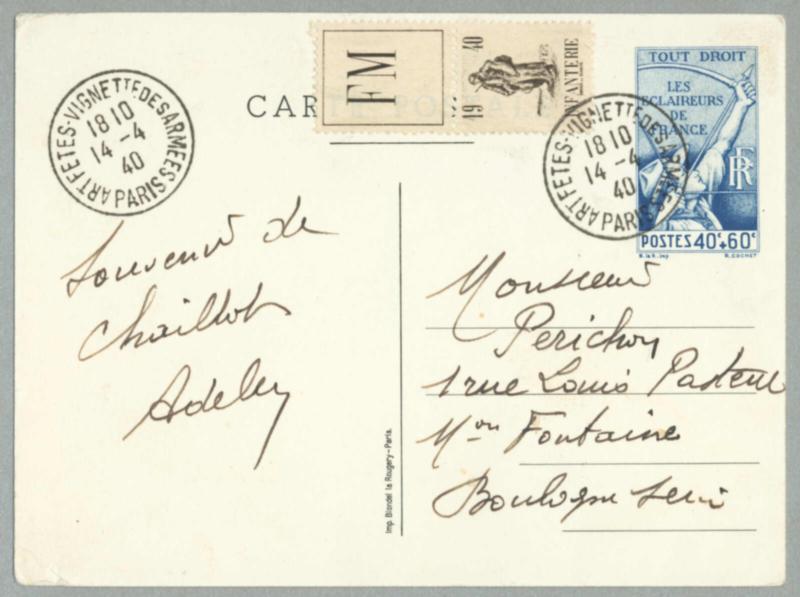 CARTE POSTALE
FM
19 40
INFANTERIE
ART FETES-VIGNETTE DES ARMEES
18 10
14 -4
40
PARIS
ART FETES-VIGNETTE DES ARMEES
18 10
14 -4
40
PARIS
TOUT DROIT
LES
ECLAIREURS
DE
FRANCE
RF
POSTES 40c+60c
R. COCHET
Souvenir de
Chaillot
Monsieur
Perichon
1 rue Louis Pasteur
Mon Fontaine
Boulogne Seine
Imp. Blondel la Rougery - Paris.